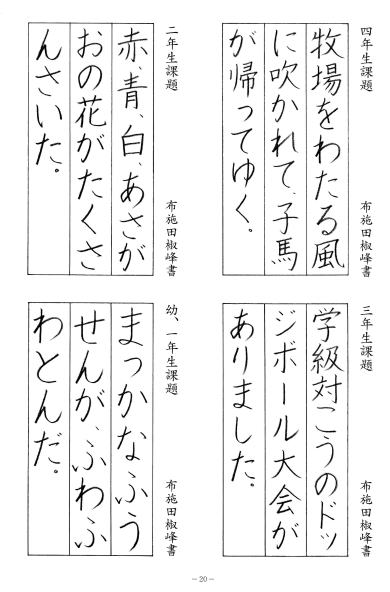 四年生課題 布施田椒峰書
牧場をわたる風
に吹かれて、子馬
が帰ってゆく。
三年生課題 布施田椒峰書
学級対こうのドッ
ジボール大会が
ありました。
二年生課題 布施田椒峰書
赤、青、白、あさが
おの花がたくさ
んさいた。
幼、一年生課題 布施田椒峰書
まっかなふう
せんが、ふわふ
わとんだ。
－20－